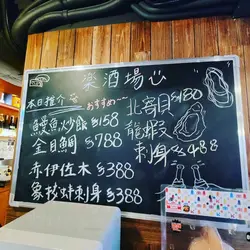 樂酒場心
本日推介 おすすめ
鰻魚炒飯 $158
金目鯛 $788
赤伊佐木 $388
象拔蚌刺身 $388
北寄貝 $180
龍蝦
刺身 $488